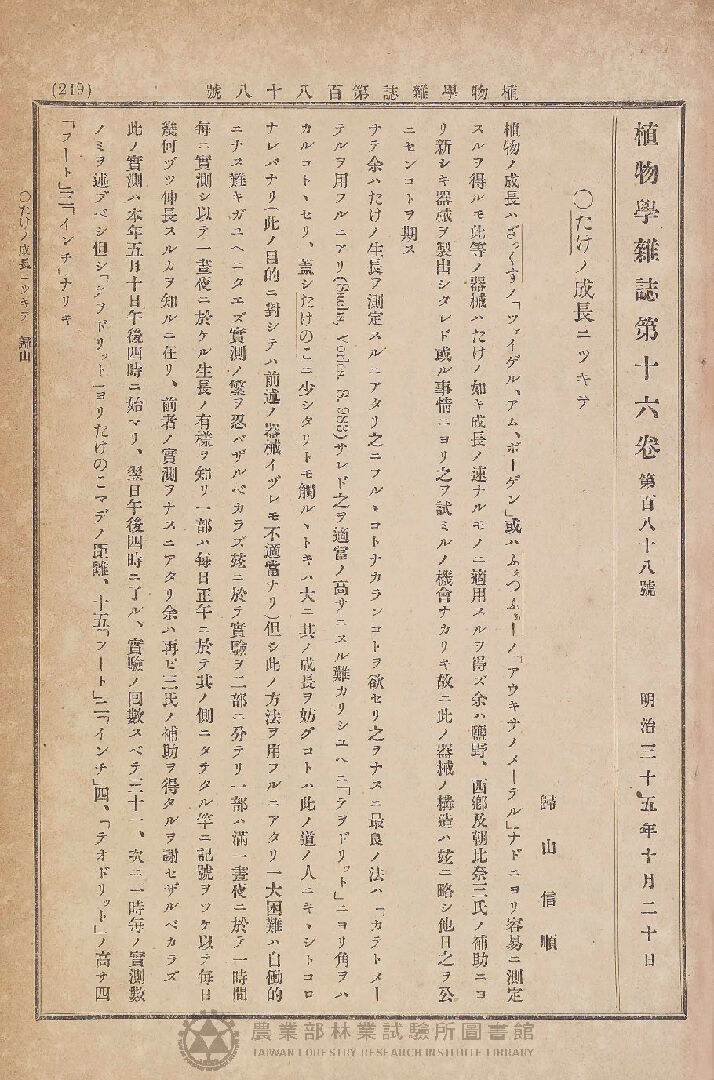 (219)
植物學雜誌第百八十八號
植物學雜誌第十六卷 第百八十八號 明治三十五年十月二十日
○たけノ成長ニツキテ
歸山信順
植物ノ成長ハざっくすノ「ツァイゲル、アム、ボーゲン」或ハふぇつふぁーノ「アウキサノメーテル」ナドニヨリ容易ニ測定
スルヲ得ルモ此等ノ器械ハたけノ如キ成長ノ速ナルモノニ適用スルヲ得ズ余ハ鹽野、西鄕及朝比奈三氏ノ補助ニヨ
リ新シキ器械ヲ製出シタレド或ル事情ニヨリ之ヲ試ミルノ機會ナカリキ故ニ此ノ器械ノ構造ハ玆ニ略シ他日之ヲ公
ニセンコトヲ期ス
サテ余ハたけノ生長ヲ測定スルニアタリ之ニフルヽコトナカランコトヲ欲セリ之ヲナスニ最良ノ法ハ「カテトメー
テルヲ用フルニアリ サレド之ヲ適當ノ高サニスル難カリシユヘニ「テヲドリット」ニヨリ角ヲハ
カルコトヽセリ、蓋シたけのこニ少シタリトモ觸ルヽトキハ大ニ其ノ成長ヲ妨グコトハ此ノ道ノ人ニキヽシトコロ
ナレバナリ(此ノ目的ニ對シテハ前述ノ器械イヅレモ不適當ナリ)但シ此ノ方法ヲ用フルニアタリ一大困難ハ自働的
ニナス難キガユヘニタエズ實測ノ繁ヲ忍バザルベカラズ玆ニ於テ實驗ヲ二部ニ分テリ一部ハ滿一晝夜ニ於テ一時間
每ニ實測シ以テ一晝夜ニ於ケル生長ノ有樣ヲ知リ一部ハ每日正午ニ於テ其ノ側ニタテタル竿ニ記號ヲツケ以テ每日
幾何ヅツ伸長スルカヲ知ルニ在リ、前者ノ實測ヲナスニアタリ余ハ再ビ三氏ノ補助ヲ得タルヲ謝セザルベカラズ
此ノ實測ハ本年五月十日午後四時ニ始マリ、翌日午後四時ニ了ル、實驗ノ回數スベテ三十一、次ニ一時每ノ實測數
ノミヲ述ブベシ但シ「テヲドリット」ヨリたけのこマデノ距離、十五「フート」二「インチ」四、「テオドリット」ノ高サ四
「フート」三「インチ」ナリキ
○たけノ成長ニツキテ 歸山
農業部林業試驗所圖書館
TAIWAN FORESTRY RESEARCH INSTITUTE LIBRARY